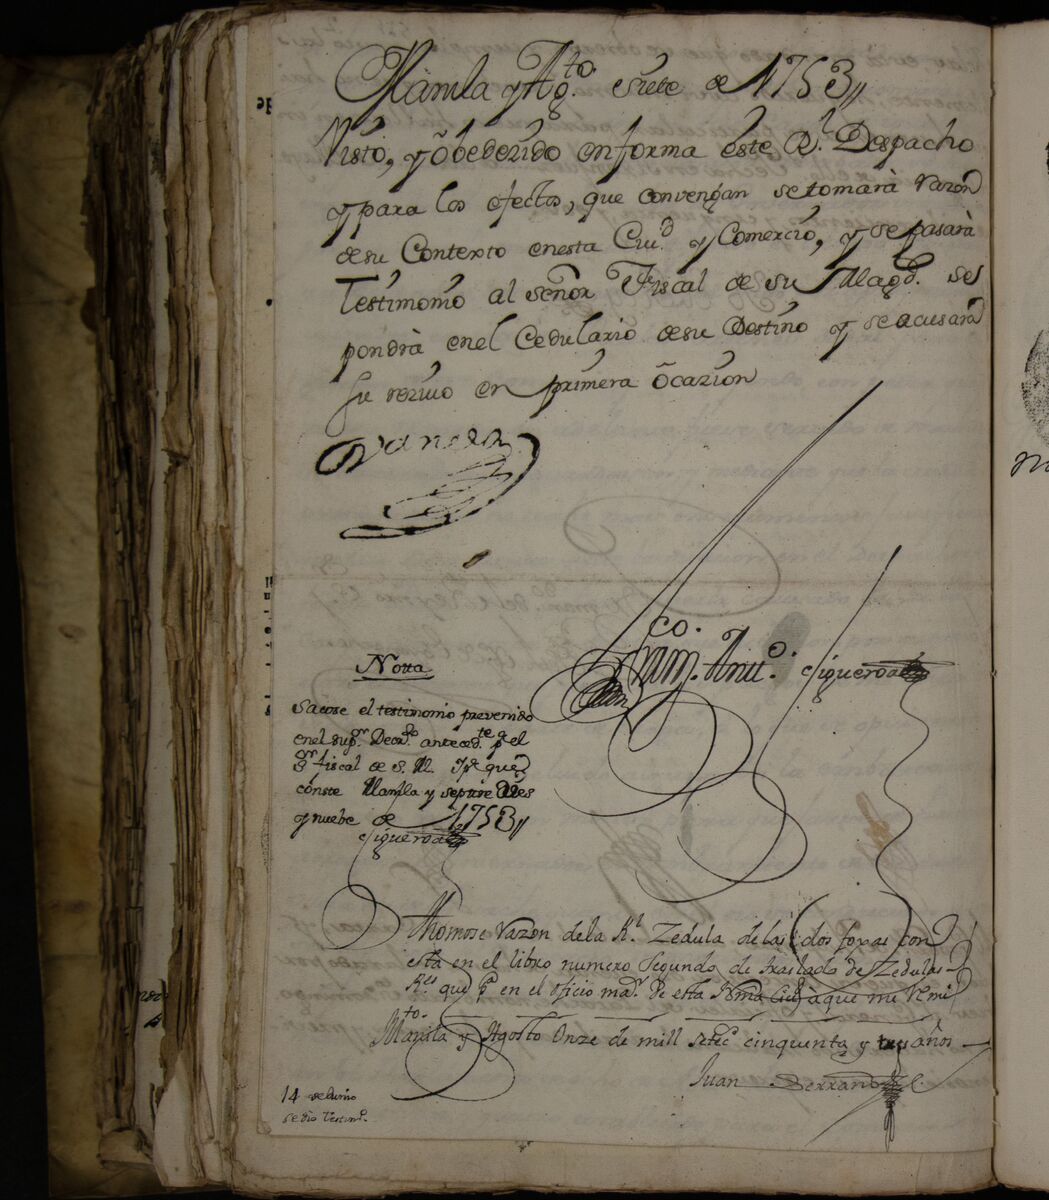 Manila y Ag.to siete de 1753,,
Visto, y obedezido enforma este Rl. Despacho
y para los efectos, que convengan setomarà razon
desu Contexto enesta Ciud. y Comercio, y sepasarà
Testimonio al señor Fiscal de su Magd. se
pondrà enel Cedulario desu Destino y seacusarà
su rezivo en primera ocazion
Fran.co Ant.o Figueroa
Notta
Sacose el testimonio prevenido
enel supr. Decrto. antecedte. pa. el
Sr. fiscal de S. M. y pa. que
conste Manila y Septire. diez
y nuebe de 1753,,
Figueroa
Thomose razon dela Rl. Zedula de las dos foxas con
esta en el libro numero Segundo de traslado de Zedulas
Rs. que pa. en el oficio mar. de esta Nma. Ciud. à que me remi
to. Manila y Agosto Onze de mill setec. cinquenta y tres años
Juan Serrano
14 de Junio
se dio Testim.o